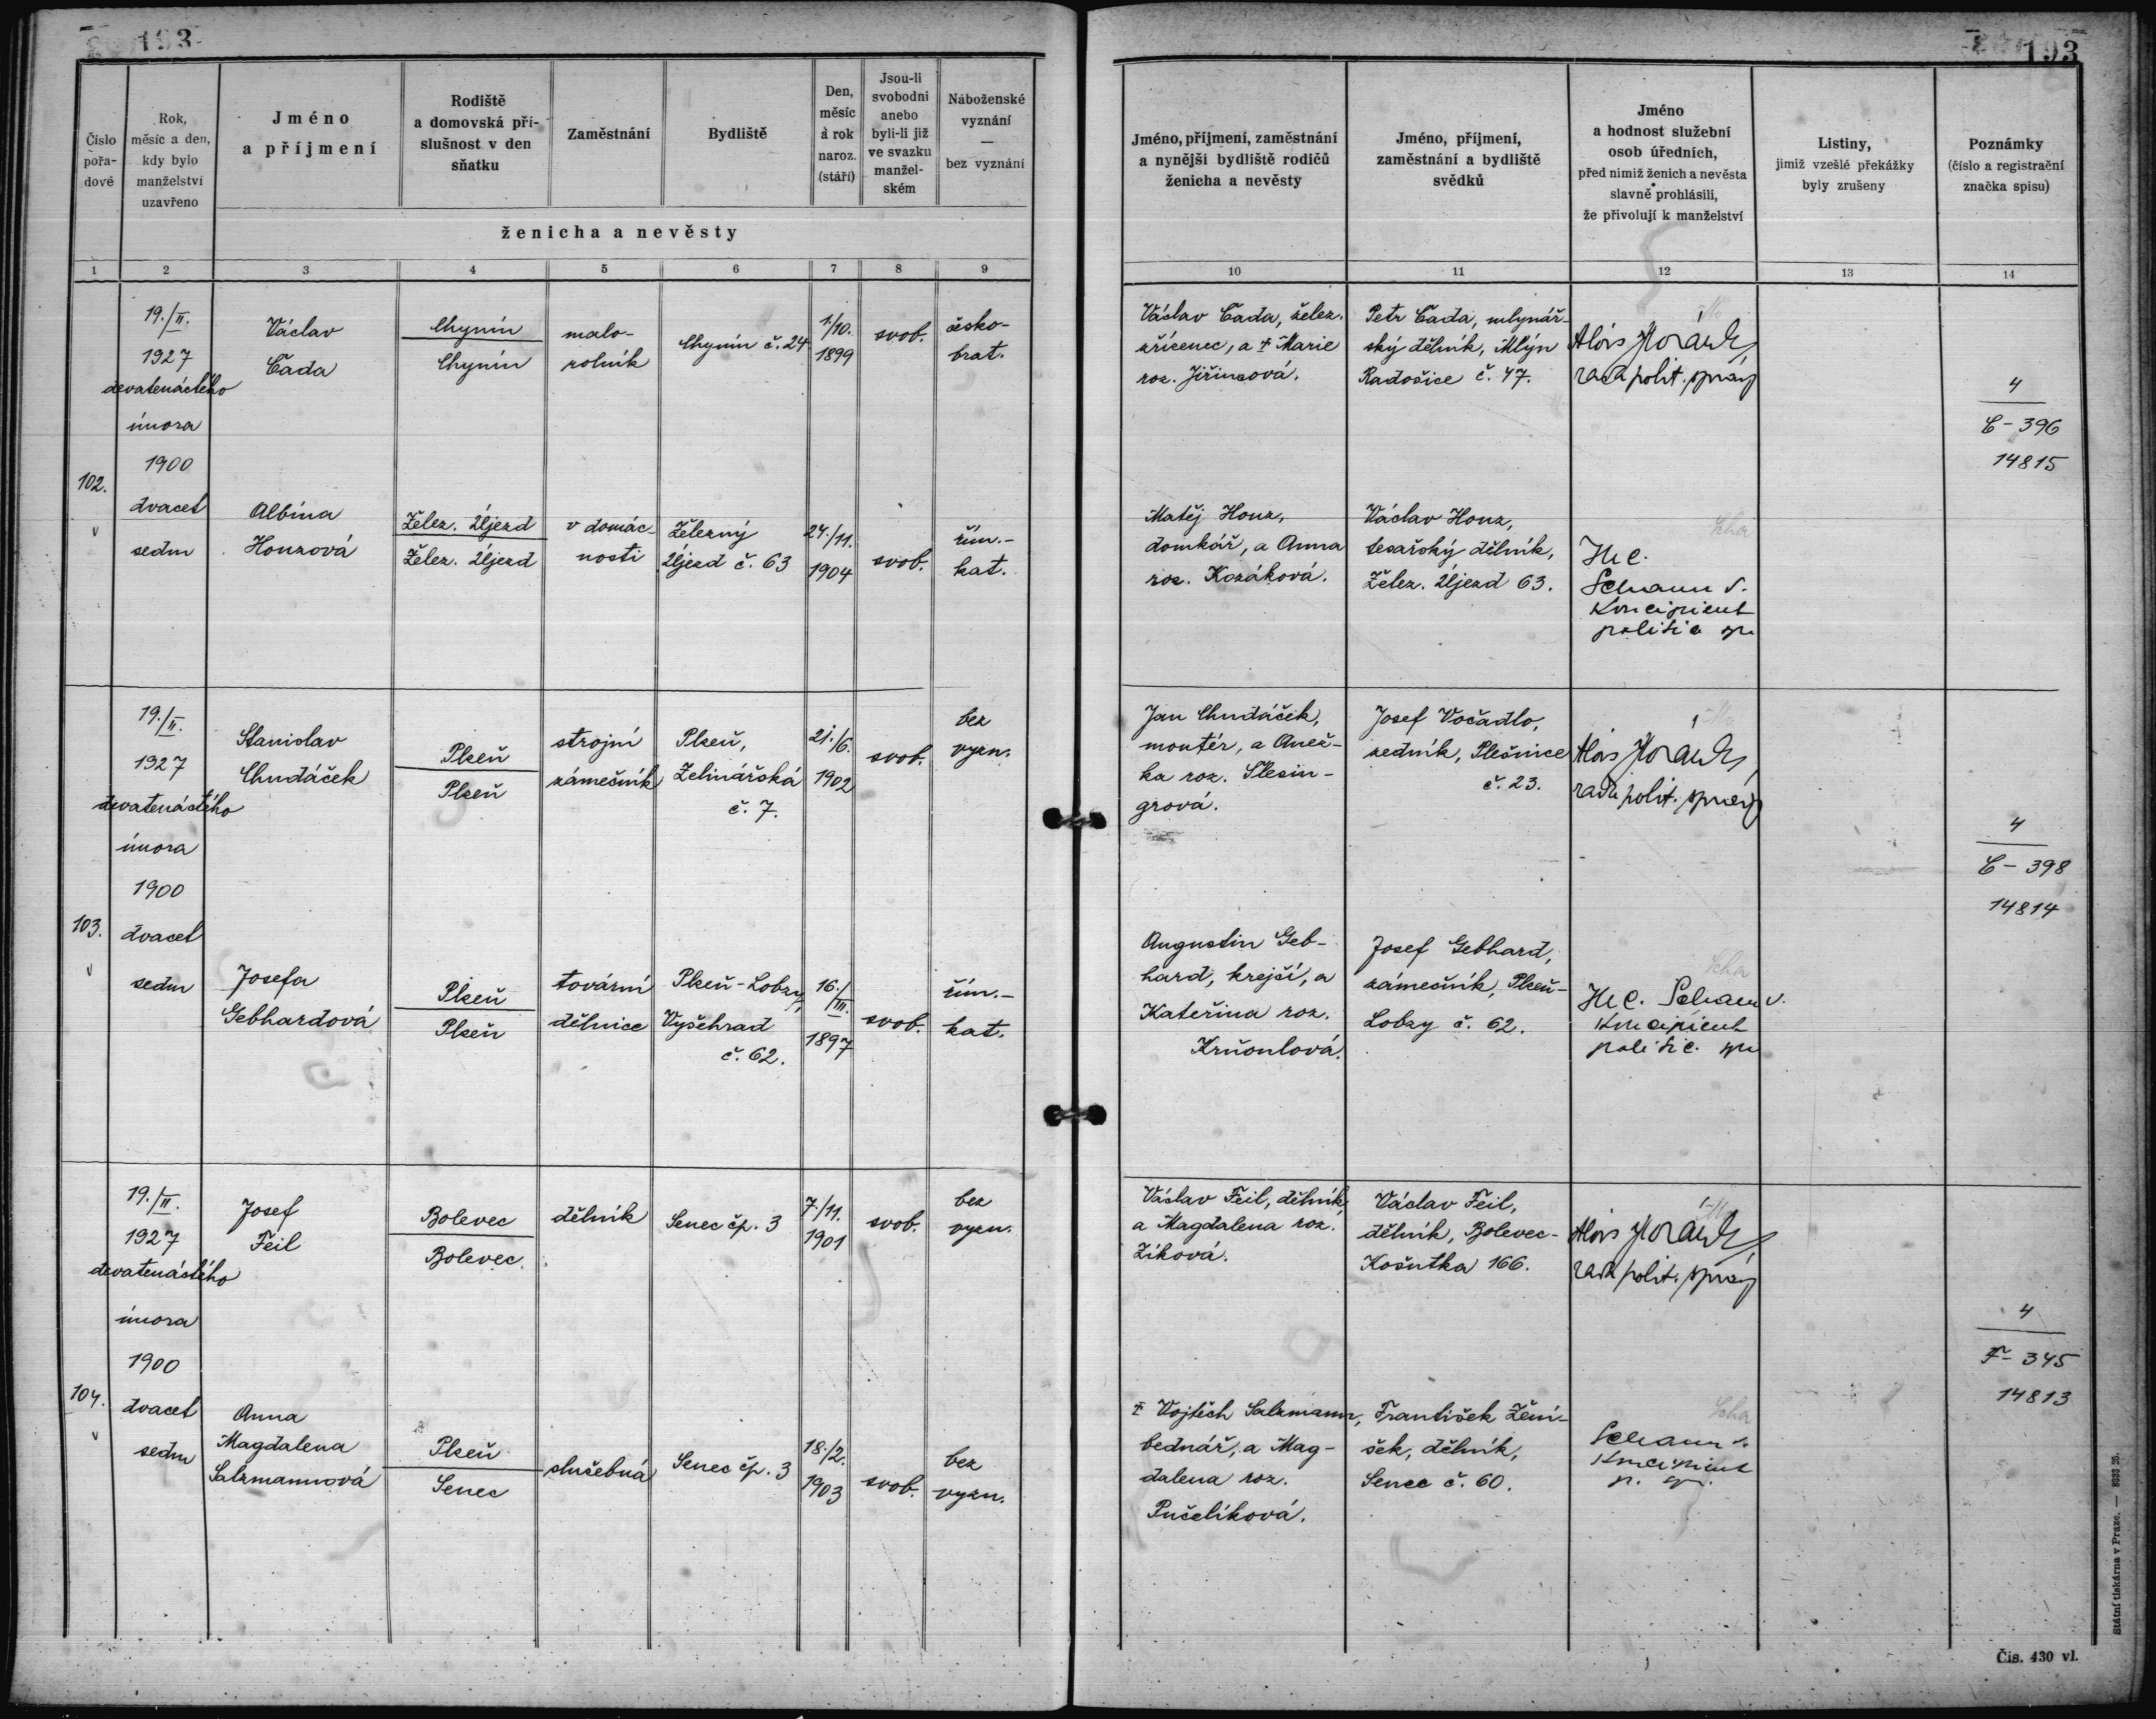 193
193
Číslo pořa-dové
Rok, měsíc a den, kdy bylo manželství uzavřeno
Jméno a příjmení
Rodiště a domovská pří-slušnost v den sňatku
Zaměstnání
Bydliště
Den, měsíc a rok naroz. (stáří)
Jsou-li svobodni anebo byli-li již ve svazku manžel-ském
Náboženské vyznání — bez vyznání
ženicha a nevěsty
Jméno, příjmení, zaměstnání a nynější bydliště rodičů ženicha a nevěsty
Jméno, příjmení, zaměstnání a bydliště svědků
Jméno a hodnost služební osob úředních, před nimiž ženich a nevěsta slavně prohlásili, že přivolují k manželství
Listiny, jimiž vzešlé překážky byly zrušeny
Poznámky (číslo a registrační značka spisu)
1 2 3 4 5 6 7 8 9 10 11 12 13 14
102.
19./II.
1927
devatenáctého
února
1900
dvacet
sedm
Václav
Čada
Chynín
Chynín
malo-
rolník
Chynín č. 24
1/10.
1899
svob.
česko-
brat.
Václav Čada, želez.
zřízenec, a † Marie
roz. Jiřincová.
Petr Čada, mlynář-
ský dělník, Mlýn
Radošice č. 47.
Alois
rada polit. správy
4
C - 396
14815
Albína
Houzová
Želez. Újezd
Želez. Újezd
v domác-
nosti
Železný
Újezd č. 63
24./11.
1904
svob.
řím.-
kat.
Matěj Houz,
domkář, a Anna
roz. Kozáková.
Václav Houz,
tesařský dělník,
Želez. Újezd 63.
koncipient
103.
19./II.
1927
devatenáctého
února
1900
dvacet
sedm
Stanislav
Chudáček
Plzeň
Plzeň
strojní
zámečník
Plzeň,
Zelinářská
č. 7.
21./6.
1902
svob.
bez
vyzn.
Jan Chudáček,
montér, a Anež-
ka roz. Šlesin-
grová.
Josef Vočadlo,
zedník, Plešnice
č. 23.
Alois
rada polit. správy
4
C - 398
14814
Josefa
Gebhardová
Plzeň
Plzeň
tovární
dělnice
Plzeň - Lobzy,
Vyšehrad
č. 62.
16./
III.
1897
svob.
řím.-
kat.
Augustin Geb-
hard, krejčí, a
Kateřina roz.
Krňoulová.
Josef Gebhard,
zámečník, Plzeň-
Lobzy č. 62.
koncipient
104.
19./II.
1927
devatenáctého
února
1900
dvacet
sedm
Josef
Feil
Bolevec
Bolevec.
dělník
Senec čp. 3
7./11.
1901
svob.
bez
vyzn.
Václav Feil, dělník,
a Magdalena roz.
Zíková.
Václav Feil,
dělník, Bolevec-
Košutka 166.
Alois
rada polit. správy
4
F - 345
14813
Anna
Magdalena
Salzmannová
Plzeň
Senec
služebná
Senec čp. 3
18./2.
1903
svob.
bez
vyzn.
† Vojtěch Salzmann,
bednář, a Mag-
dalena roz.
Pučelíková.
František Žení-
šek, dělník,
Senec č. 60.
koncipient
Státní tiskárna v Praze. — 8333 26.
Čís. 430 vl.